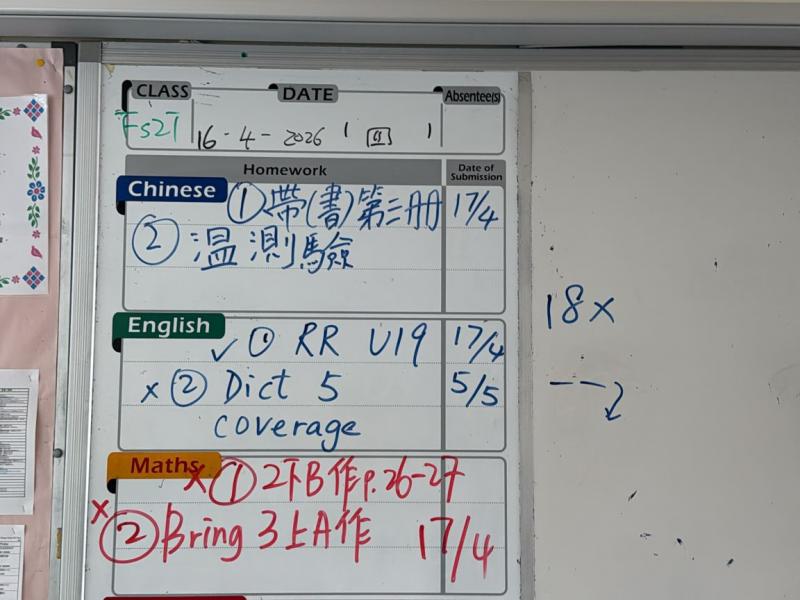 CLASS
DATE
Absentee(s)
FS2T
16-4-2026 (四)
Homework
Date of Submission
Chinese
① 帶(書)第三册 17/4
② 温測驗
English
✓ ① RR U19 17/4
× ② Dict 5 5/5
coverage
Maths
× ① 2下B作p.26-27
× ② Bring 3上A作 17/4
18×